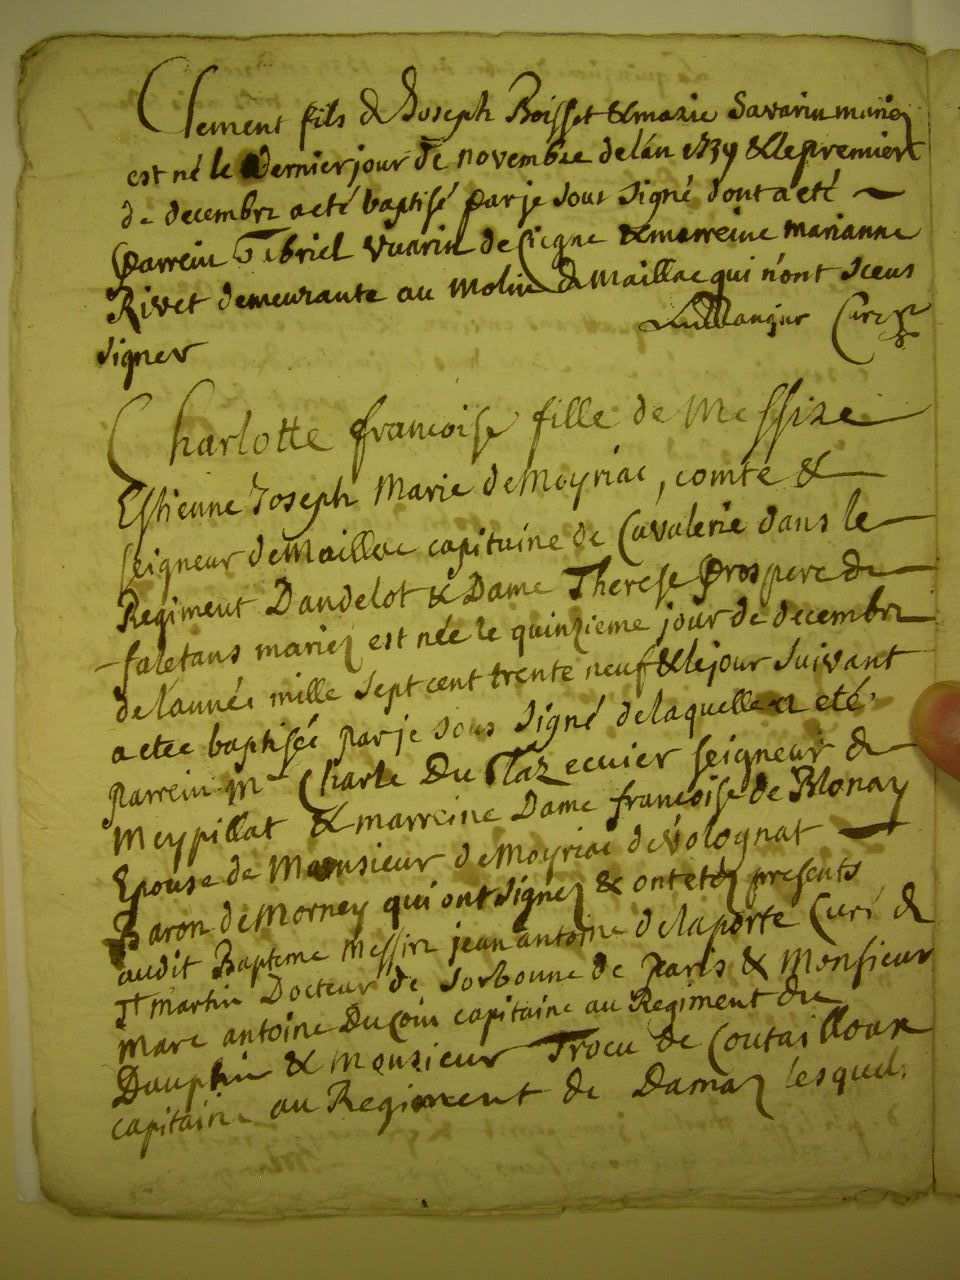 Clement fils de Joseph Boisset & marie Savarin mariez
est né le dernier jour de novembre de l'an 1739 & le premier
de decembre a eté baptisé par je sous signé dont a eté
parrein Gibriel Vuarin de Ciegne & marreine marianne
Rivet demeurante au molin de Maillac qui n'ont sceus
signer Curé
Charlotte francoise fille de Messire
Estienne Joseph Marie de Moyriac, comte &
seigneur de Maillac capitaine de Cavalerie dans le
Regiment Dandelot & Dame Therese Prospere de
faletans mariez est née le quinzieme jour de decembre
de l'année mille sept cent trente neuf & le jour suivant
a etee baptisée par je sous signé de laquelle a eté
parrein Mr Charle Du Plaz ecuier seigneur de
Meypillat & marreine Dame francoise de Blonay
Epouse de Monsieur de Moyriac de Volognat
Baron de Mornay qui ont signez & ont etez presents
audit Bapteme Messire jean antoine delaporte Curé de
St martin Docteur de sorbonne de Paris & Monsieur
Marc antoine Ducoin capitaine au Regiment du
Dauphin & Monsieur Trocu de Coutailloux
capitaine au Regiment de Damaz lesquels